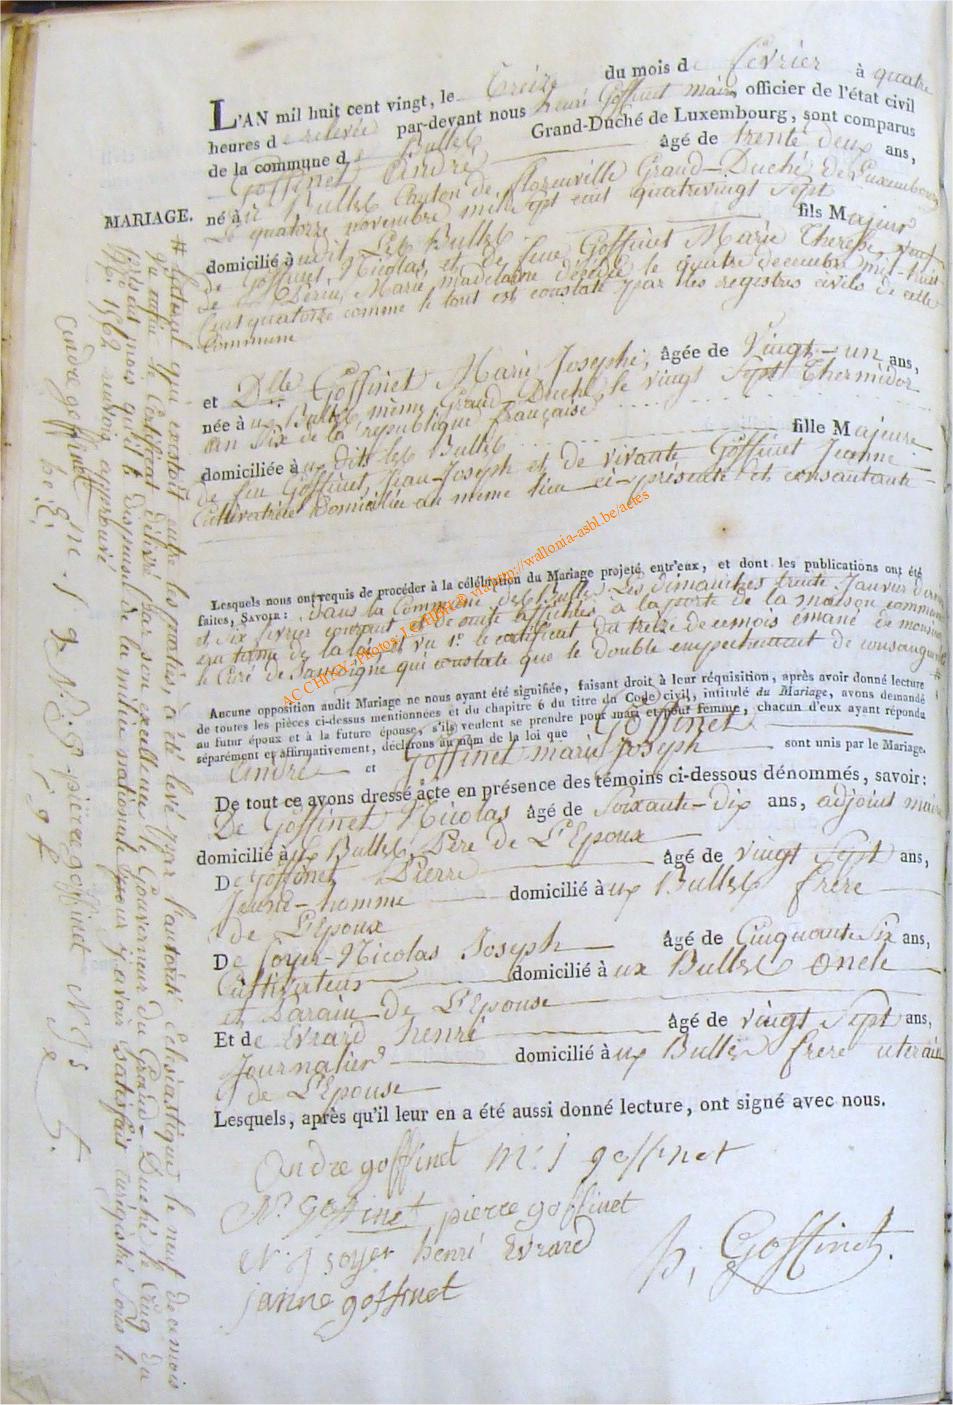 L'AN mil huit cent vingt, le treize du mois de février à quatre
heures de relevée par-devant nous henri Goffinet maire, officier de l'état civil
de la commune de Bulles Grand-Duché de Luxembourg, sont comparus
Goffinet André âgé de trente deux ans,
MARIAGE. né à Bulles Canton de florenville Grand-Duché de Luxembourg
Le quatorze novembre mil sept cent quatrevingt sept
domicilié à udit les Bulles fils Majeur
de Goffinet Nicolas, et de feue Goffinet Marie Therese, veuf
de Marie madelaine décédée le quatre decembre mil-huit-
Cent quatorze comme le tout est constaté par les registres civils de cette
Commune
et Dlle Goffinet Marie Josephe, âgée de Vingt-un ans,
née à ux Bulles même Grand Duché, le vingt sept thermidor
an Six de la république française
domiciliée à ux dits les Bulles fille Majeure
de feu Goffinet Jean-Joseph et de vivante Goffinet Jeanne
Cultivatrice domiciliée au même lieu ci-présente et consantante
Lesquels nous ont requis de procéder à la célébration du Mariage projeté entr'eux, et dont les publications ont été
faites, SAVOIR: dans la Commune des Bulles, Les dimanches trente Janvier dernier
et six fevrier courant et de suite affichés à la porte de la maison commune
en terme de la loi et vu 1º le certificat du treize de ce mois émané de monsieur
le Curé de Jamoigne qui constate que le double empechement de consanguinité
Aucune opposition audit Mariage ne nous ayant été signifiée, faisant droit à leur réquisition, après avoir donné lecture
de toutes les pièces ci-dessus mentionnées et du chapitre 6 du titre du Code civil, intitulé du Mariage, avons demandé
au futur époux et à la future épouse, s'ils veulent se prendre pour mari et pour femme, chacun d'eux ayant répondu
séparément et affirmativement, déclarons au nom de la loi que Goffinet
André et Goffinet marie Joseph sont unis par le Mariage.
De tout ce avons dressé acte en présence des témoins ci-dessous dénommés, savoir:
De Goffinet Nicolas âgé de Soixante-dix ans, adjoint maire
domicilié à ux Bulles, Père de L'Epoux
De Goffinet Pierre âgé de vingt Sept ans,
Jeune-homme domicilié à ux Bulles frère
de L'Epoux
De Soyer-Nicolas Joseph âgé de Cinquante Six ans,
Cultivateur domicilié à ux Bulles oncle
et Parain de L'Epouse
Et de Evrard henri âgé de vingt Sept ans,
Journalier domicilié à ux Bulles frere uterain
de L'Epouse
Lesquels, après qu'il leur en a été aussi donné lecture, ont signé avec nous.
andre goffinet m. j goffinet
N. Goffinet pierre goffinet
N. j soyer henri Evrard
janne goffinet
h, Goffinet.
# Lateral qui existait entre les parties, à été levé par l'autorité Eclesiastique le neuf de ce mois
le Certificat délivré par son excellence le Gouverneur du Grand-Duché le
mois qu'il a dispensé de la milice nationale pour y avoir satisfait enrégistré sous le
Nº 1562 renvoi approuvé
andre goffinet
h. G. N. J. G. pierre goffinet N. J s
AC CHINY, Photos J. Lefèbvre © via http://wallonia-asbl.be/actes